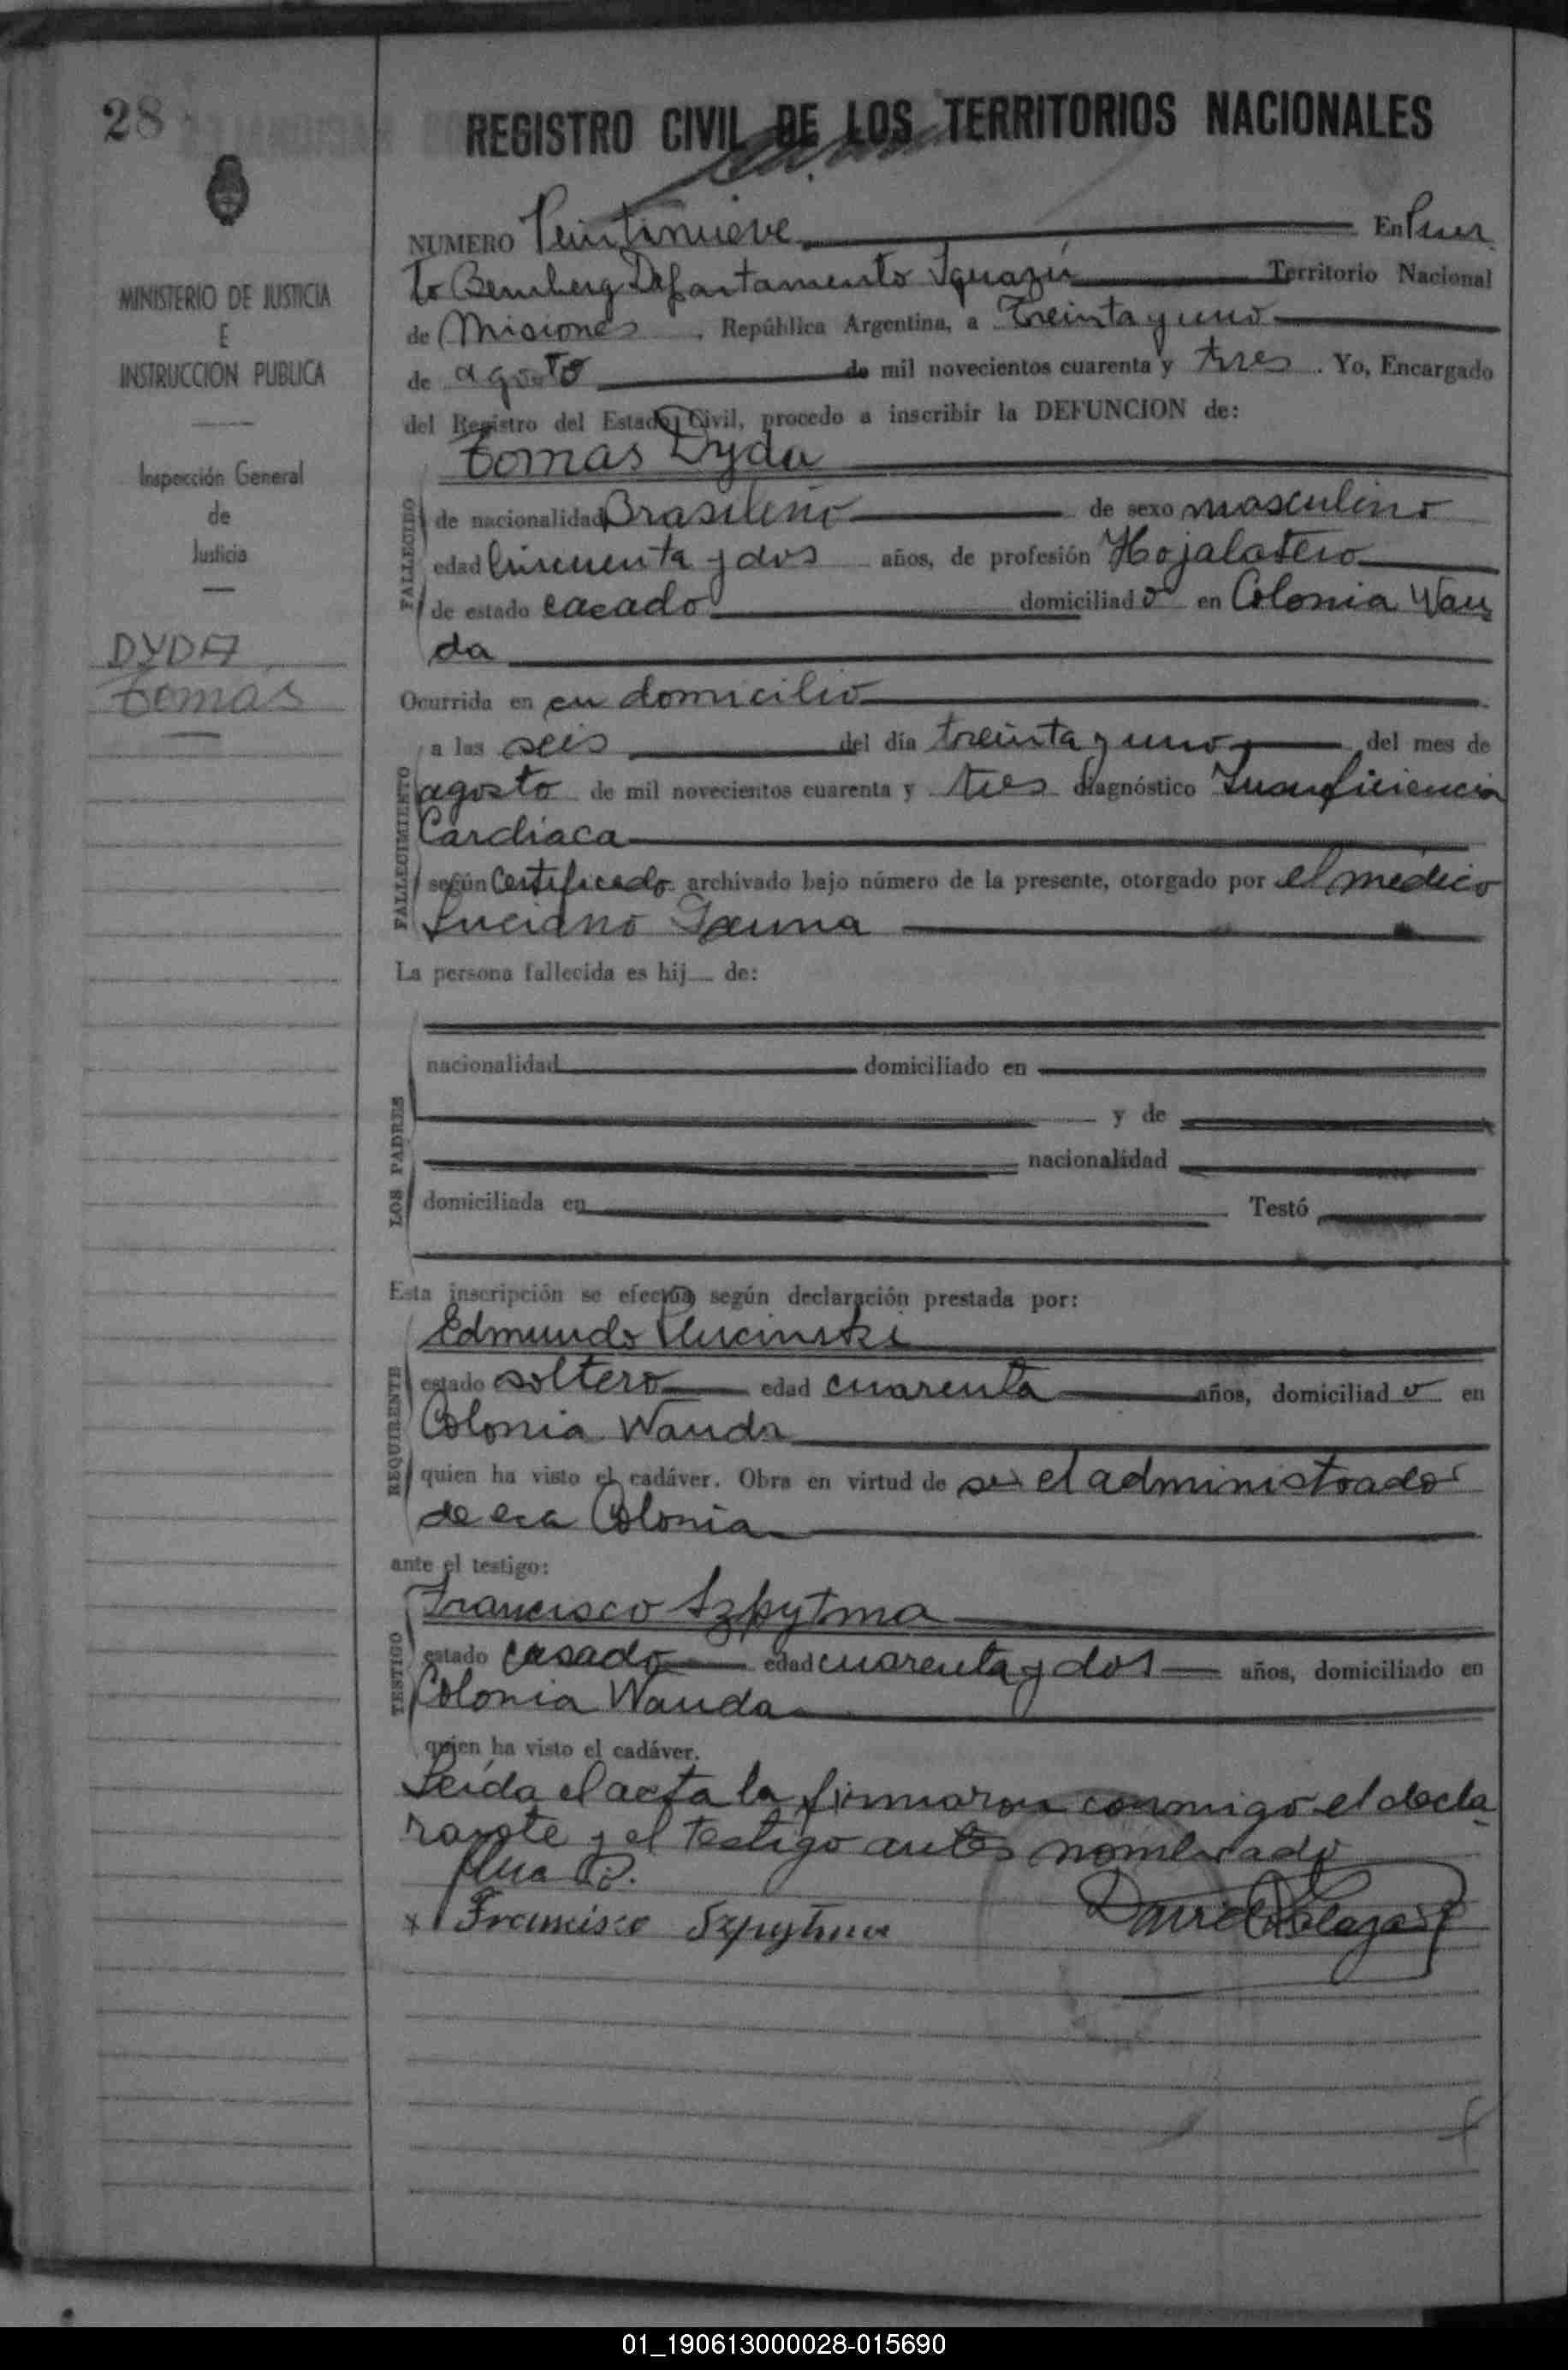 28
REGISTRO CIVIL DE LOS TERRITORIOS NACIONALES
MINISTERIO DE JUSTICIA
E
INSTRUCCION PUBLICA
Inspección General
de
Justicia
DYDA
Tomás
NUMERO Veintinueve En Puer
to Bemberg Departamento Iguazú Territorio Nacional
de Misiones , República Argentina, a Treinta y uno
de agosto de mil novecientos cuarenta y tres . Yo, Encargado
del Registro del Estado Civil, procedo a inscribir la DEFUNCION de:
Tomas Dyda
FALLECIDO
de nacionalidad Brasileño de sexo masculino
edad Cincuenta y dos años, de profesión Hojalatero
de estado casado domiciliado en Colonia Wan
da
Ocurrida en su domicilio
FALLECIMIENTO
a las seis del día treinta y uno del mes de
agosto de mil novecientos cuarenta y tres diagnóstico Insuficiencia
Cardiaca
según Certificado archivado bajo número de la presente, otorgado por el médico
Luciano
La persona fallecida es hij de:
LOS PADRES
nacionalidad domiciliado en
y de
nacionalidad
domiciliada en Testó
Esta inscripción se efectúa según declaración prestada por:
REQUIRENTE
Edmundo Plucinski
estado soltero edad cuarenta años, domiciliado en
Colonia Wanda
quien ha visto el cadáver. Obra en virtud de ser el administrador
de esa Colonia
ante el testigo:
TESTIGO
Francisco Szpytma
estado casado edad cuarenta y dos años, domiciliado en
Colonia Wanda
quien ha visto el cadáver.
Leída el acta la firmaron conmigo el decla
rante y el testigo antes nombrado
x Francisco Szpytma
01_190613000028-015690